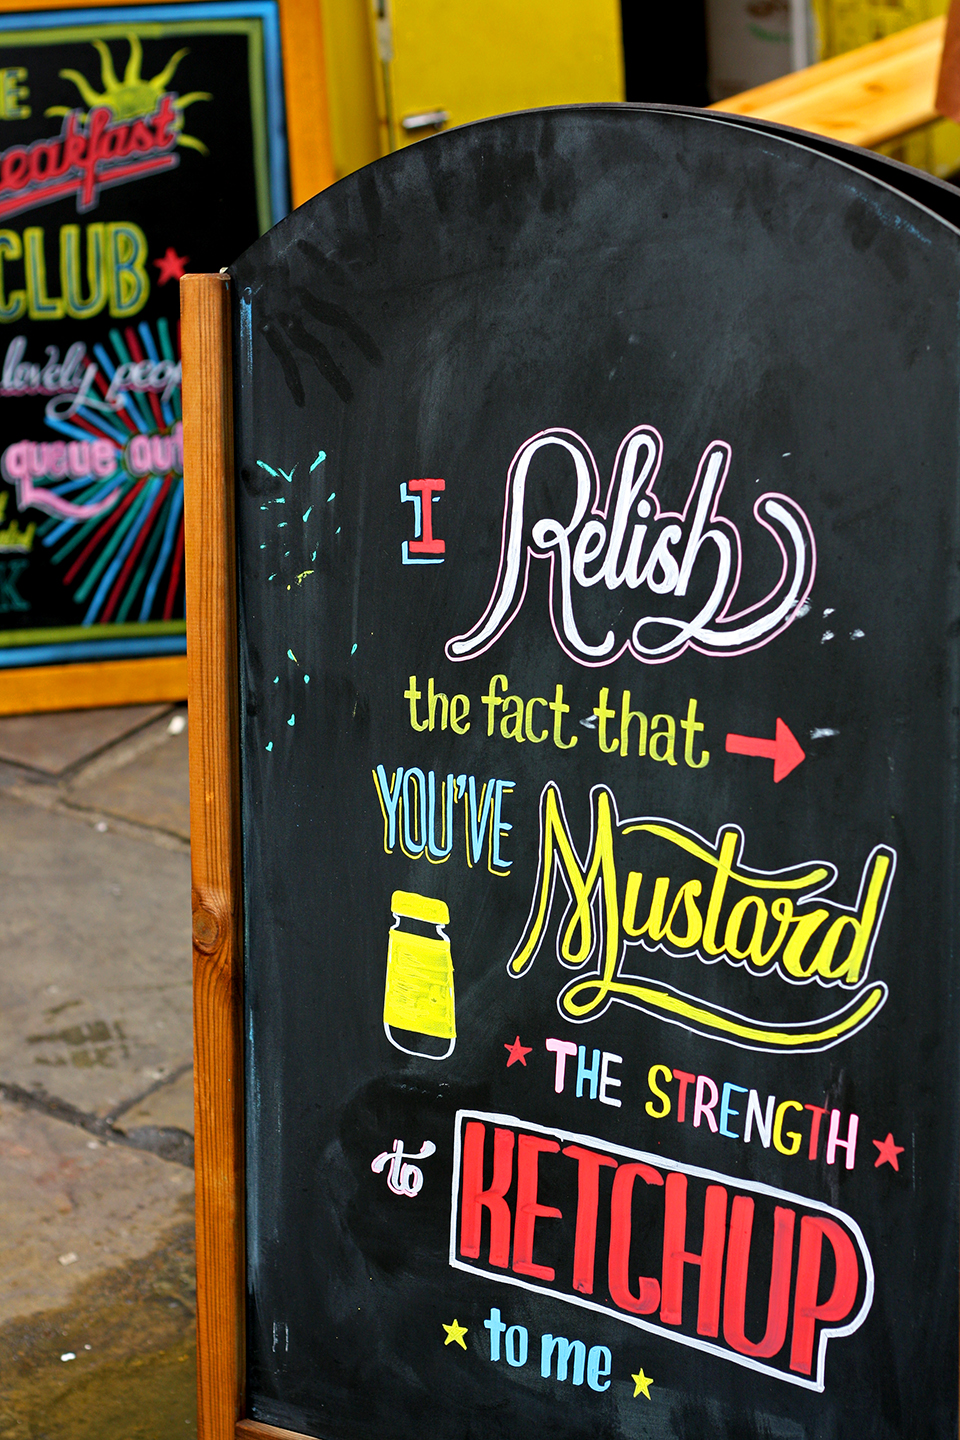 Breakfast
CLUB
lovely
queue out
I Relish
the fact that
YOU'VE Mustard
THE STRENGTH
to KETCHUP
to me